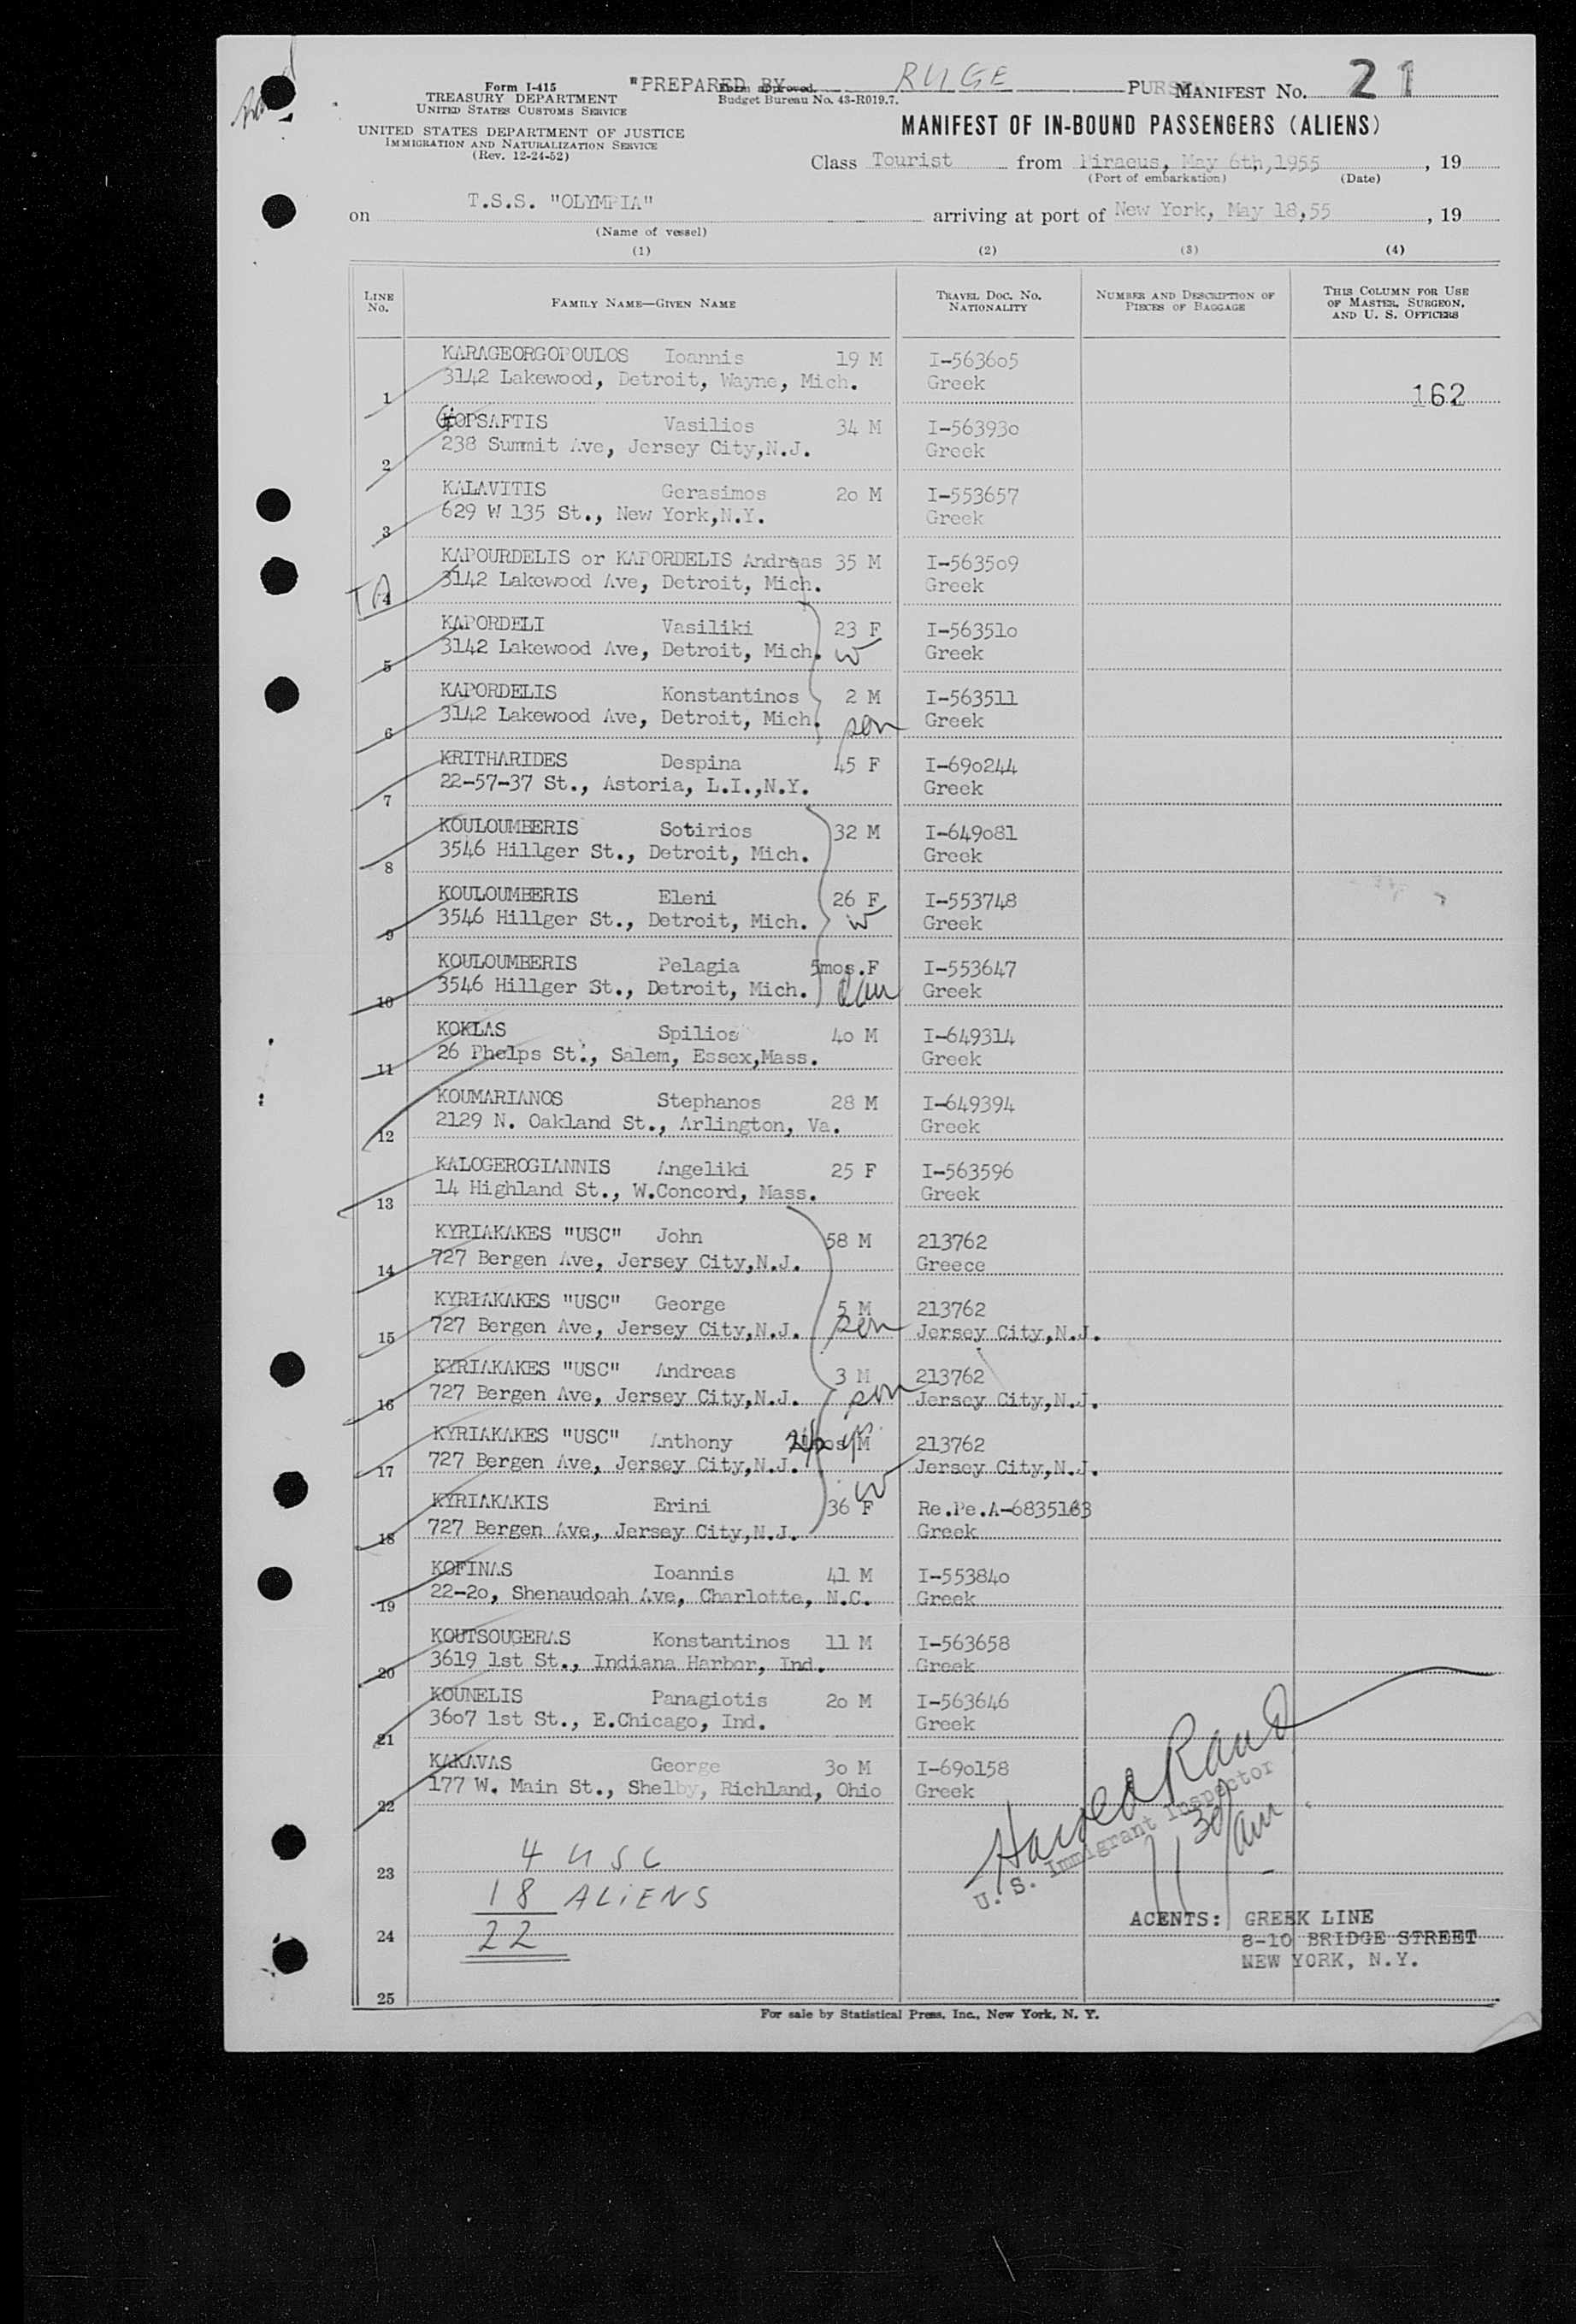 Form I-415
TREASURY DEPARTMENT
UNITED STATES CUSTOMS SERVICE
UNITED STATES DEPARTMENT OF JUSTICE
IMMIGRATION AND NATURALIZATION SERVICE
(Rev. 12-24-52)
"PREPARED BY RUGE PURSER
Form approved.
Budget Bureau No. 43-R019.7.
MANIFEST No. 21
MANIFEST OF IN-BOUND PASSENGERS (ALIENS)
Class Tourist from Piraeus, May 6th,1955, 19
(Port of embarkation) (Date)
on T.S.S. "OLYMPIA" arriving at port of New York, May 18,55, 19
(Name of vessel)
(1) (2) (3) (4)
LINE No. FAMILY NAME—GIVEN NAME TRAVEL DOC. No. NATIONALITY NUMBER AND DESCRIPTION OF PIECES OF BAGGAGE THIS COLUMN FOR USE OF MASTER, SURGEON, AND U. S. OFFICERS
KARAGEORGOPOULOS Ioannis 19 M I-563605
1 3142 Lakewood, Detroit, Wayne, Mich. Greek 162
GOPSAFTIS Vasilios 34 M I-563930
2 238 Summit Ave, Jersey City,N.J. Greek
KALAVITIS Gerasimos 20 M I-553657
3 629 W 135 St., New York,N.Y. Greek
KAPOURDELIS or KAPORDELIS Andreas 35 M I-563509
4 3142 Lakewood Ave, Detroit, Mich. Greek
KAPORDELI Vasiliki 23 F I-563510
5 3142 Lakewood Ave, Detroit, Mich. W Greek
KAPORDELIS Konstantinos 2 M I-563511
6 3142 Lakewood Ave, Detroit, Mich. son Greek
KRITHARIDES Despina 45 F I-690244
7 22-57-37 St., Astoria, L.I.,N.Y. Greek
KOULOUMBERIS Sotirios 32 M I-649081
8 3546 Hillger St., Detroit, Mich. Greek
KOULOUMBERIS Eleni 26 F I-553748
9 3546 Hillger St., Detroit, Mich. W Greek
KOULOUMBERIS Pelagia 5mos.F I-553647
10 3546 Hillger St., Detroit, Mich. Greek
KOKLAS Spilios 40 M I-649314
11 26 Phelps St., Salem, Essex,Mass. Greek
KOUMARIANOS Stephanos 28 M I-649394
12 2129 N. Oakland St., Arlington, Va. Greek
KALOGEROGIANNIS Angeliki 25 F I-563596
13 14 Highland St., W.Concord, Mass. Greek
KYRIAKAKES "USC" John 58 M 213762
14 727 Bergen Ave, Jersey City,N.J. Greece
KYRIAKAKES "USC" George 5 M 213762
15 727 Bergen Ave, Jersey City,N.J. son Jersey City,N.J.
KYRIAKAKES "USC" Andreas 3 M 213762
16 727 Bergen Ave, Jersey City,N.J. son Jersey City,N.J.
KYRIAKAKES "USC" Anthony M 213762
17 727 Bergen Ave, Jersey City,N.J. Jersey City,N.J.
KYRIAKAKIS Erini 36 F W Re.Pe.A-6835163
18 727 Bergen Ave, Jersey City,N.J. Greek
KOFINAS Ioannis 41 M I-553840
19 22-20, Shenaudoah Ave, Charlotte, N.C. Greek
KOUTSOUGERAS Konstantinos 11 M I-563658
20 3619 1st St., Indiana Harbor, Ind. Greek
KOUNELIS Panagiotis 20 M I-563646
21 3607 1st St., E.Chicago, Ind. Greek
KAKAVAS George 30 M I-690158
22 177 W. Main St., Shelby, Richland, Ohio Greek
U. S. Immigrant Inspector
1130 am
23 4 USC
18 ALIENS
24 22
25
AGENTS: GREEK LINE
8-10 BRIDGE STREET
NEW YORK, N.Y.
For sale by Statistical Press, Inc., New York, N. Y.